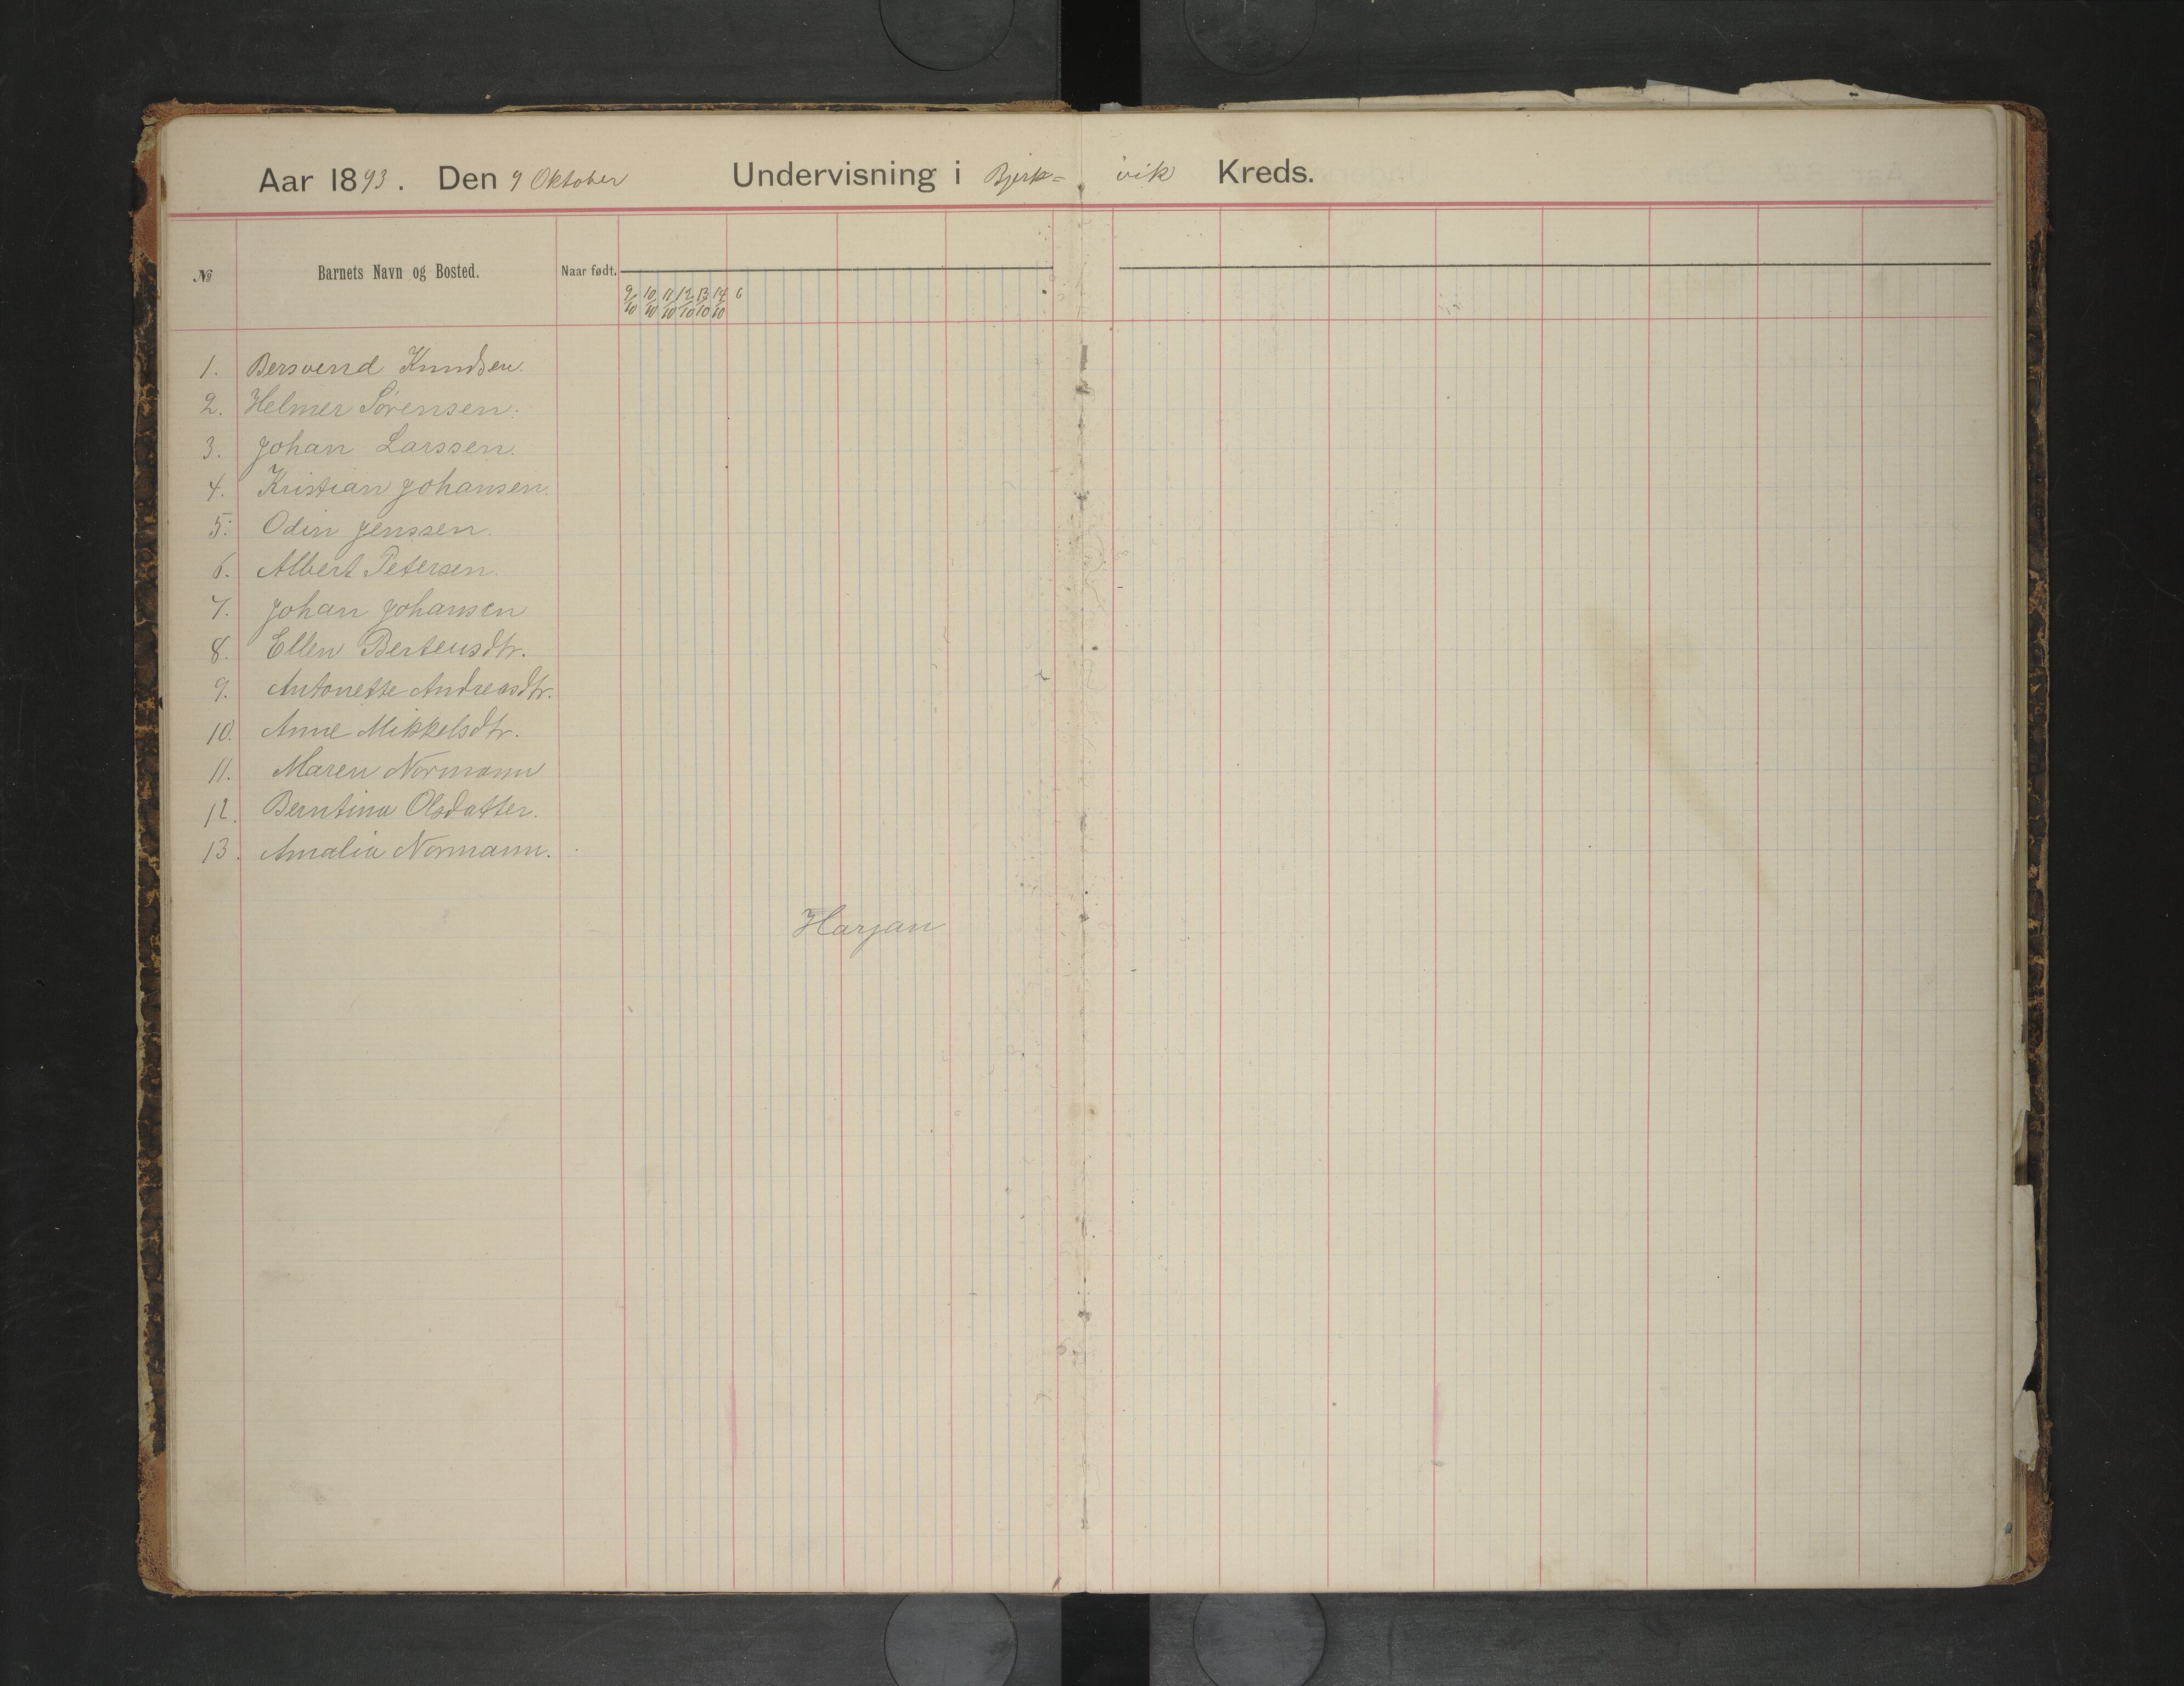 Aar 1893. Den 9 Oktober Undervisning i Bjerk= vik Kreds.
№ Barnets Navn og Bosted. Naar født.
9/10 10/10 11/10 12/10 13/10 14/10 6
1. Bersvend Knudsen.
2. Helmer Sørensen.
3. Johan Larssen.
4. Kristian Johansen.
5. Odin Jenssen.
6. Albert Petersen.
7. Johan Johansen
8. Ellen Berteusdtr.
9. Antonette Andreasdtr.
10. Anne Mikkelsdtr.
11. Maren Normann
12. Berntina Olsdatter.
13. Amalia Normann.
Harjan